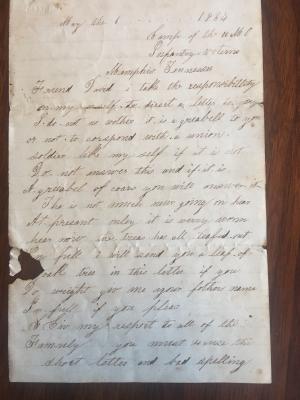 May the 1 1864
Camp of the
Infantry
Memphis Tennessee
Friend I take the responsibility
on my self to a letter
I do not no wither it is agreabell to you
or not to corspond with a union
soldier like my self if it is not
Do not answer this and if it is
Agreabel of coars you will answer it
Tha is not much new going on hear
At present it is verry worm
hear now the treas has all leafed out
in full I will send you a leaf of
oake tree in this letter if you
weight me your name
In full if you pleas
Giv my respect to all of the
Famerly you must scuse the
short letter and bad spelling